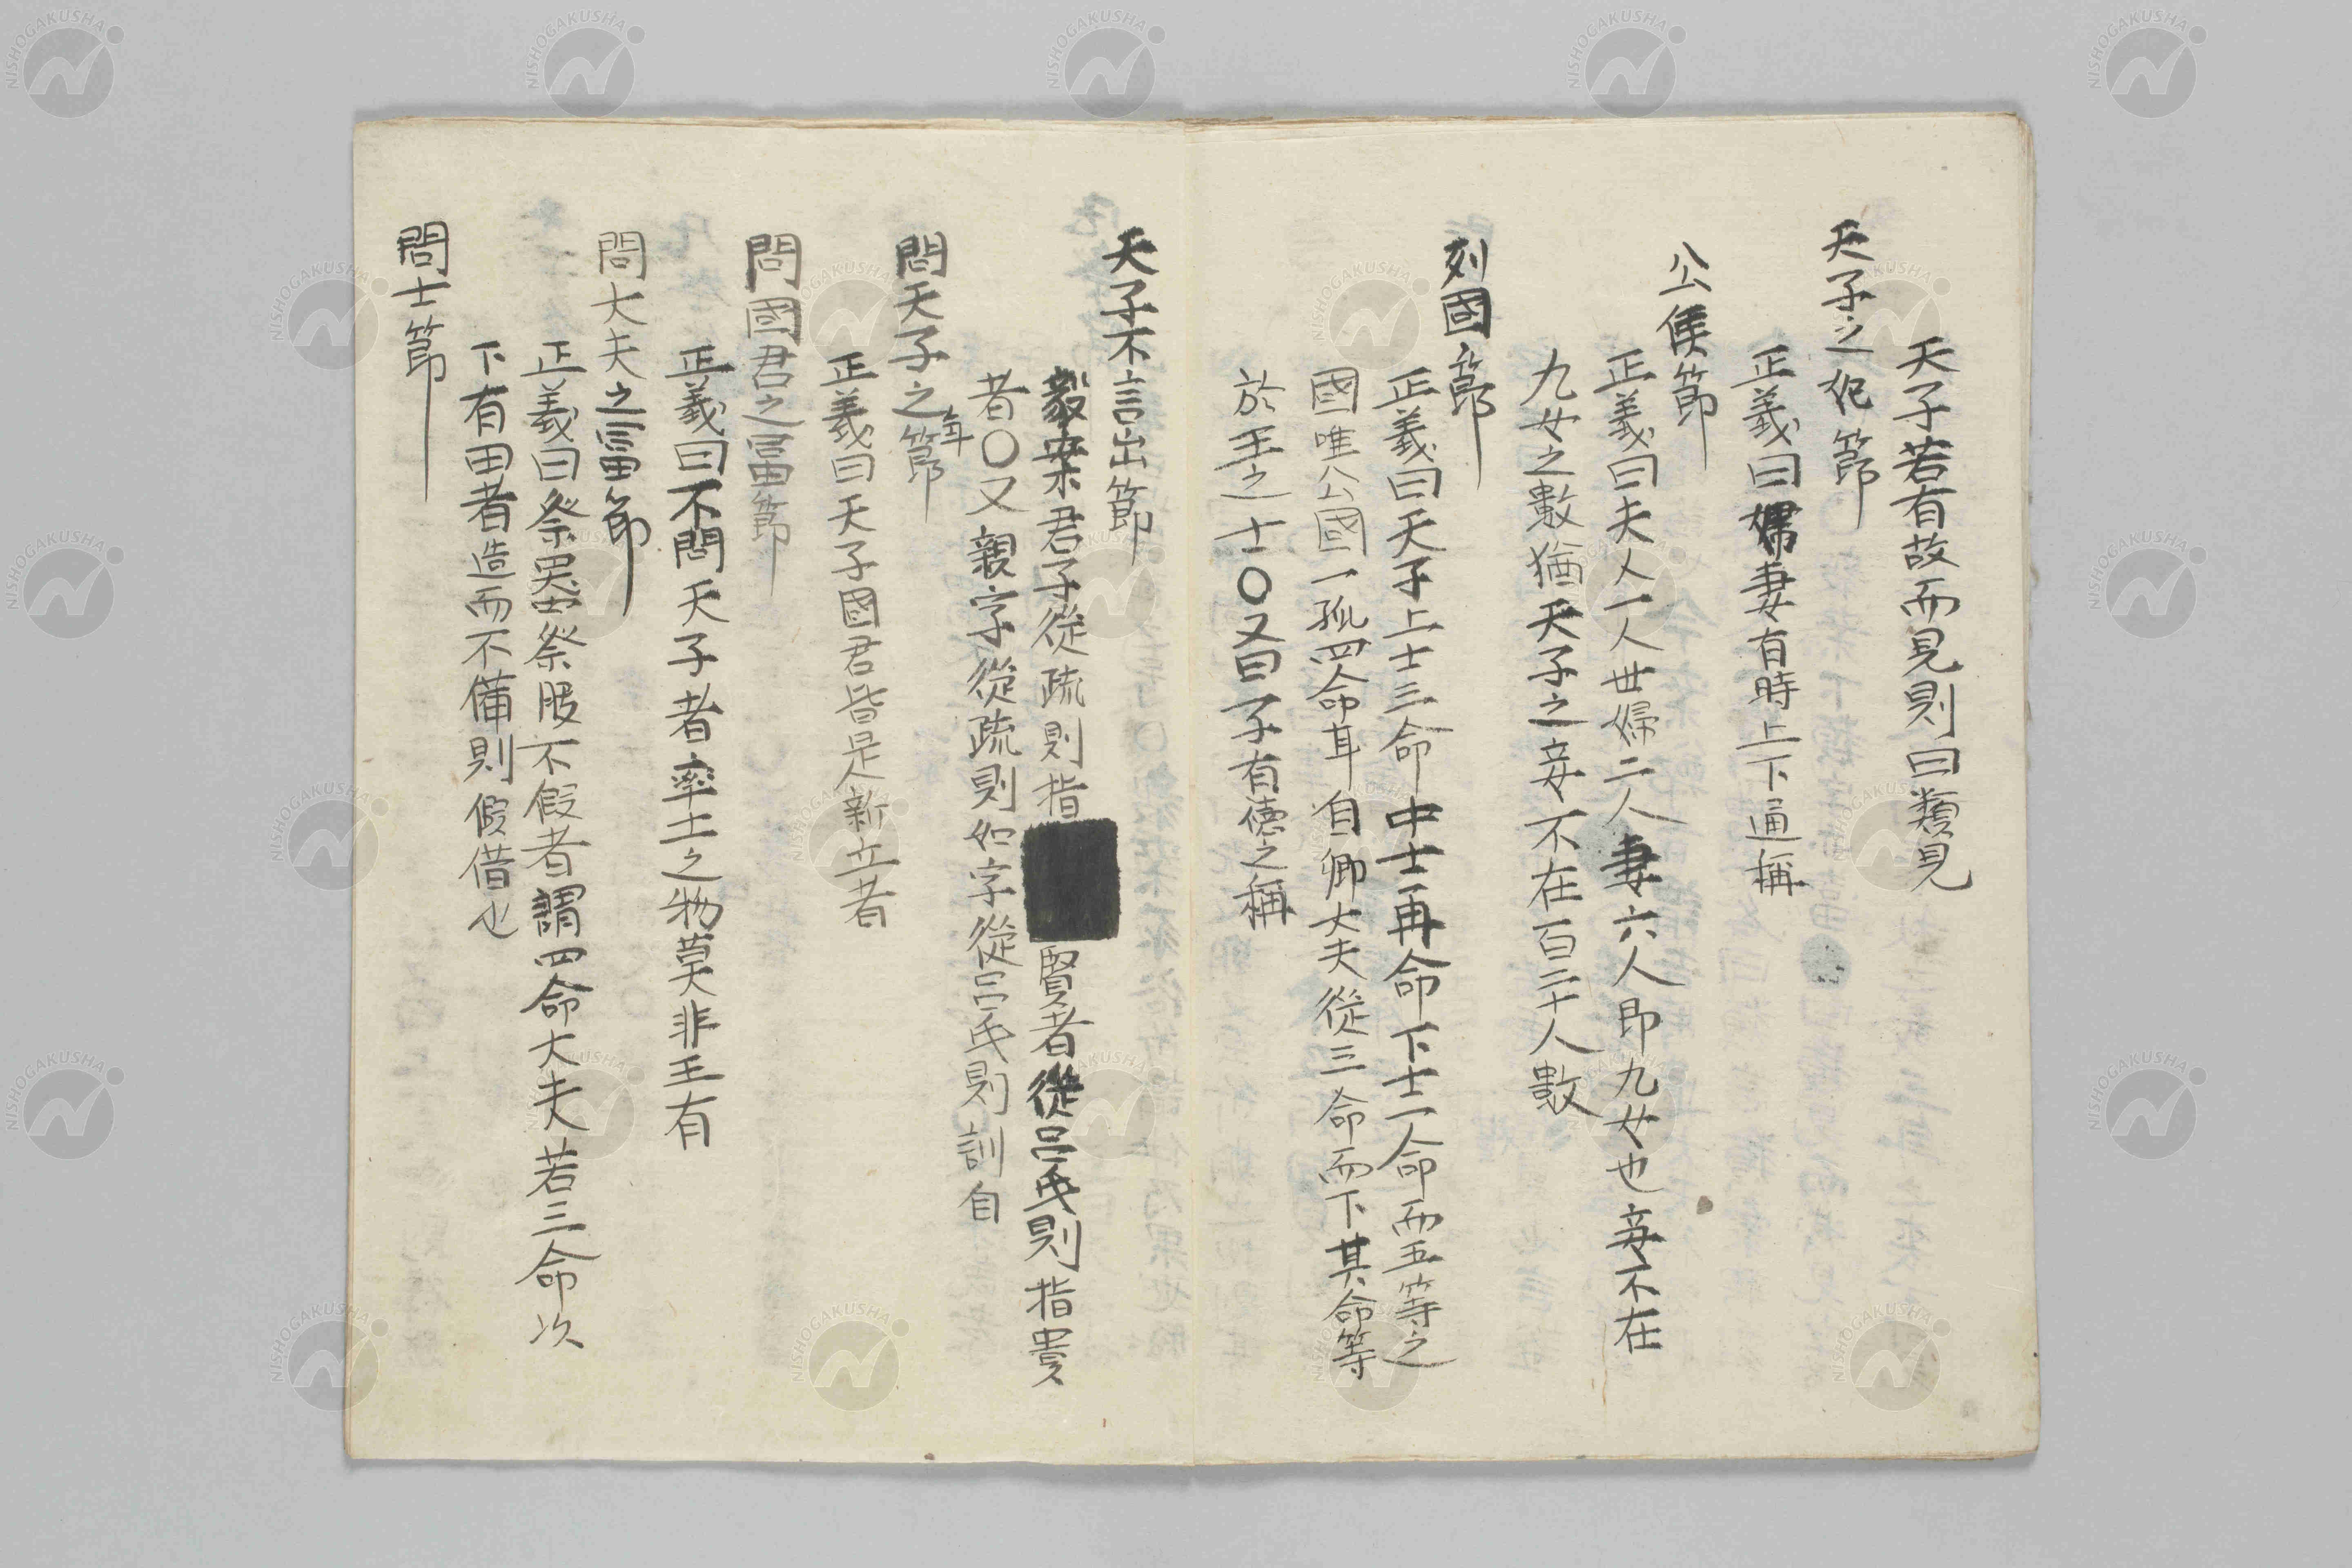 天子若有故而見則曰類見
天子之妃節
正義曰婦妻有時上下通稱
公侯節
正義曰夫人一人世婦二人妻六人即九女也妾不在
九女之數猶天子之妾不在百二十人數
列國節
正義曰天子上士三命中士再命下士一命而五等之
國唯公國一孤四命耳自卿大夫從三命而下其命等
於王之士〇又曰子有德之稱
天子不言出節
毅案君子從疏則指賢者從呂氏則指貴
者〇又親字從疏則如字從呂氏則訓自
問天子之年節
正義曰天子國君皆是新立者
問國君之富節
正義曰不問天子者率土之物莫非王有
問大夫之富節
正義曰祭器祭服不假者謂四命大夫若三命次
下有田者造而不備則假借也
問士節
NISHOGAKUSHA